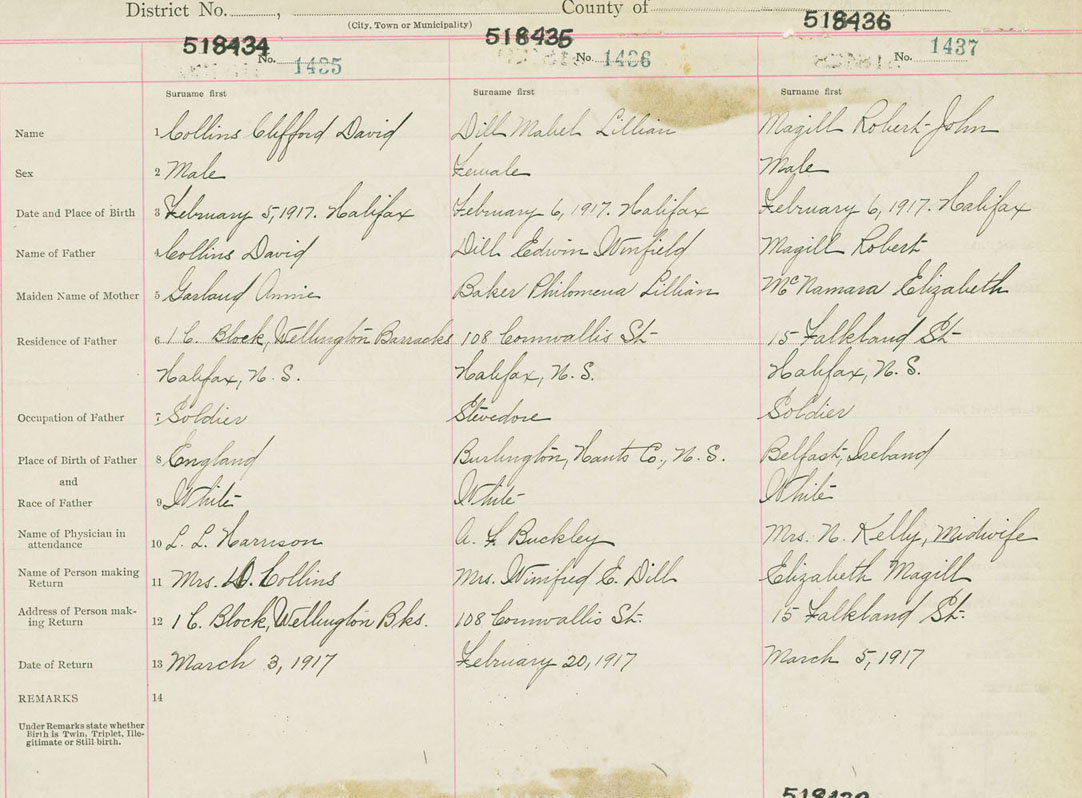 District No. , County of
(City, Town or Municipality)
518434 518435 518436
No. 1435 No. 1436 No. 1437
Surname first Surname first Surname first
Name 1 Collins Clifford David Dill Mabel Lillian Magill Robert John
Sex 2 Male Female Male
Date and Place of Birth 3 February 5, 1917. Halifax February 6, 1917. Halifax February 6, 1917. Halifax
Name of Father 4 Collins David Dill Edwin Winfield Magill Robert
Maiden Name of Mother 5 Garland Annie Baker Philomena Lillian McNamara Elizabeth
Residence of Father 6 1 C. Block, Wellington Barracks 108 Cornwallis St. 15 Falkland St.
Halifax, N. S. Halifax, N. S. Halifax, N. S.
Occupation of Father 7 Soldier Stevedore Soldier
Place of Birth of Father 8 England Burlington, Hants Co., N. S. Belfast, Ireland
and
Race of Father 9 White White White
Name of Physician in
attendance 10 L. L. Harrison A. F. Buckley Mrs. N. Kelly, Midwife
Name of Person making
Return 11 Mrs. D. Collins Mrs. Winifred E. Dill Elizabeth Magill
Address of Person mak-
ing Return 12 1 C. Block, Wellington Bks. 108 Cornwallis St. 15 Falkland St.
Date of Return 13 March 3, 1917 February 20, 1917 March 5, 1917
REMARKS 14
Under Remarks state whether
Birth is Twin, Triplet, Ille-
gitimate or Still-birth.